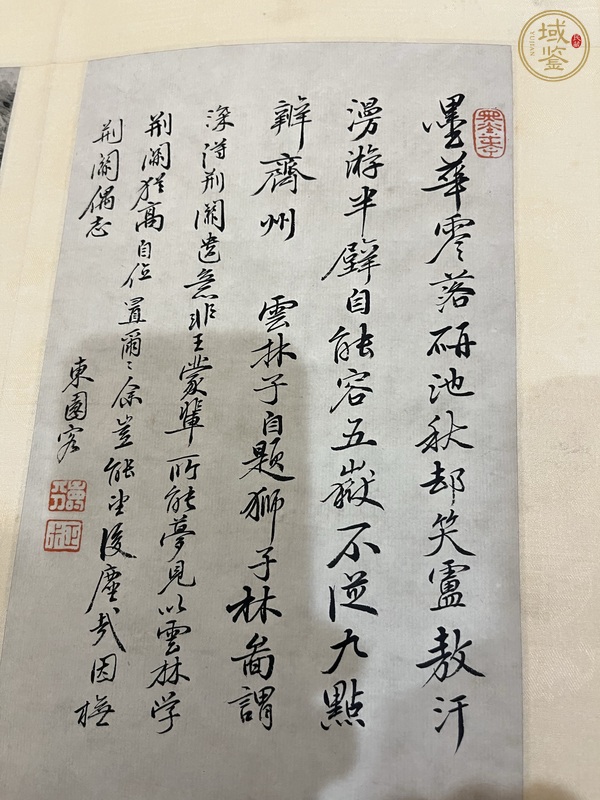 墨華零落研池秋却笑盧敖汗
漫游半壁自能容五嶽不從九點
辨齊州 雲林子自題獅子林畫謂
深得荆關遺意非王蒙輩所能夢見以雲林学
荆關猶高自位置爾爾余豈能望後塵哉因橅
荆關偶志
東園客
域鑒
YUJIAN